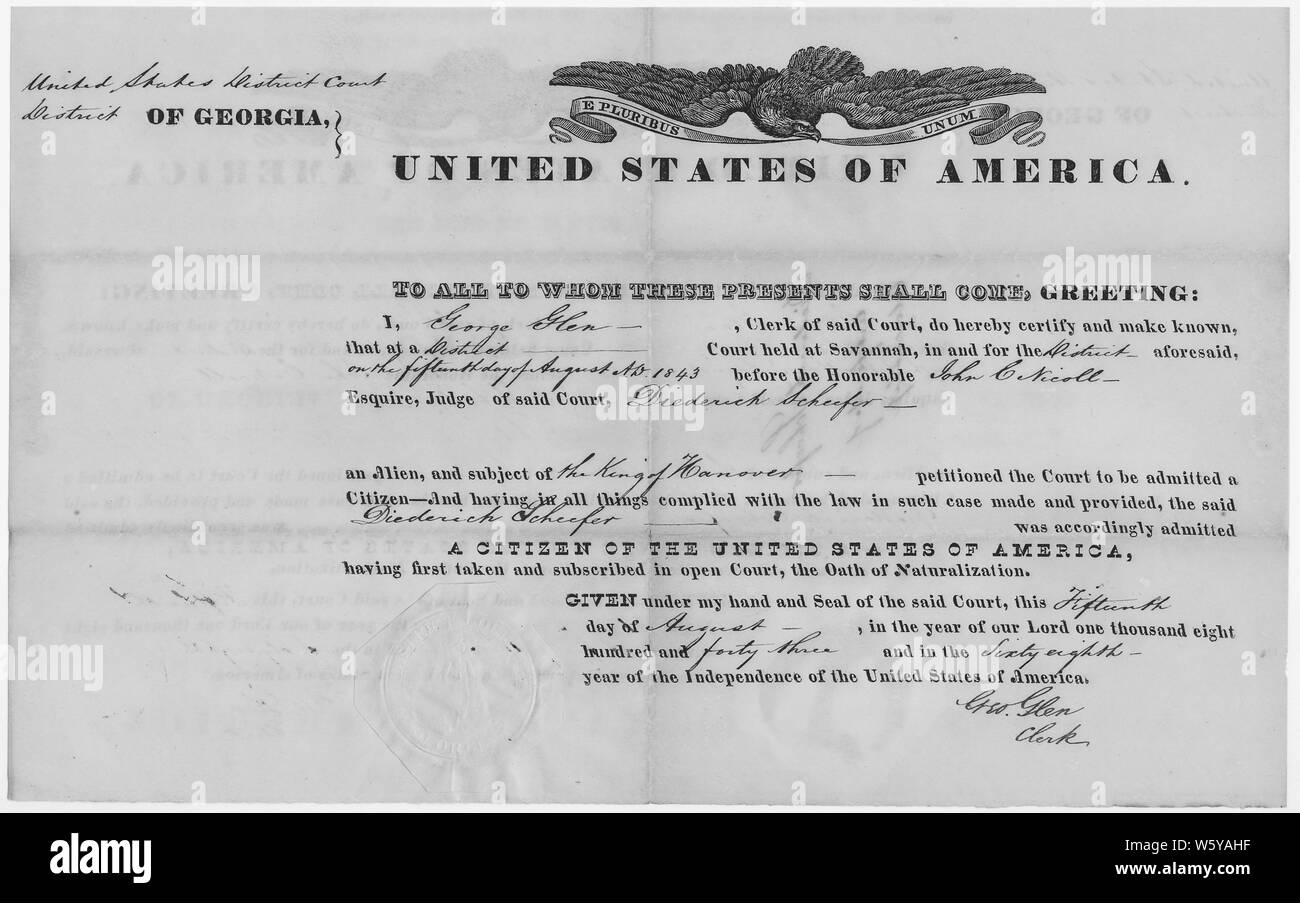 United States District Court
District OF GEORGIA,
E PLURIBUS UNUM
UNITED STATES OF AMERICA.
TO ALL TO WHOM THESE PRESENTS SHALL COME, GREETING:
I, George Glen , Clerk of said Court, do hereby certify and make known,
that at a District Court held at Savannah, in and for the District aforesaid,
on the fifteenth day of August A.D. 1843 before the Honorable John C Nicoll
Esquire, Judge of said Court, Diederick Scheefer
an Alien, and subject of the King of Hanover petitioned the Court to be admitted a
Citizen—And having in all things complied with the law in such case made and provided, the said
Diederick Scheefer was accordingly admitted
A CITIZEN OF THE UNITED STATES OF AMERICA,
having first taken and subscribed in open Court, the Oath of Naturalization.
GIVEN under my hand and Seal of the said Court, this Fifteenth
day of August , in the year of our Lord one thousand eight
hundred and forty three and in the Sixty eighth
year of the Independence of the United States of America.
Geo. Glen
Clerk
alamy
alamy
Image ID: W5YAHF
www.alamy.com